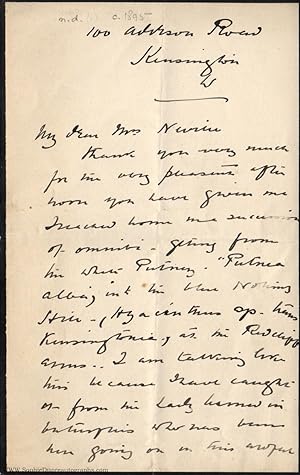 n.d. c. 1895
100 Addison Road
Kensington
W
My dear Mrs Neville
Thank you very much
for the very pleasant after
noon you have given me
I reached home in a succession
of omnibi - getting from
the white Putney - "Putnea
alba", into the blue Notting
Hill - (Hyacinthus sp. trans
Kensingtonia, at the Redcliffe
arms .. I am talking like
this because I have caught
it from the lady learned in
butterflies who has been
here going on in this
www.SophieDupreautographs.com